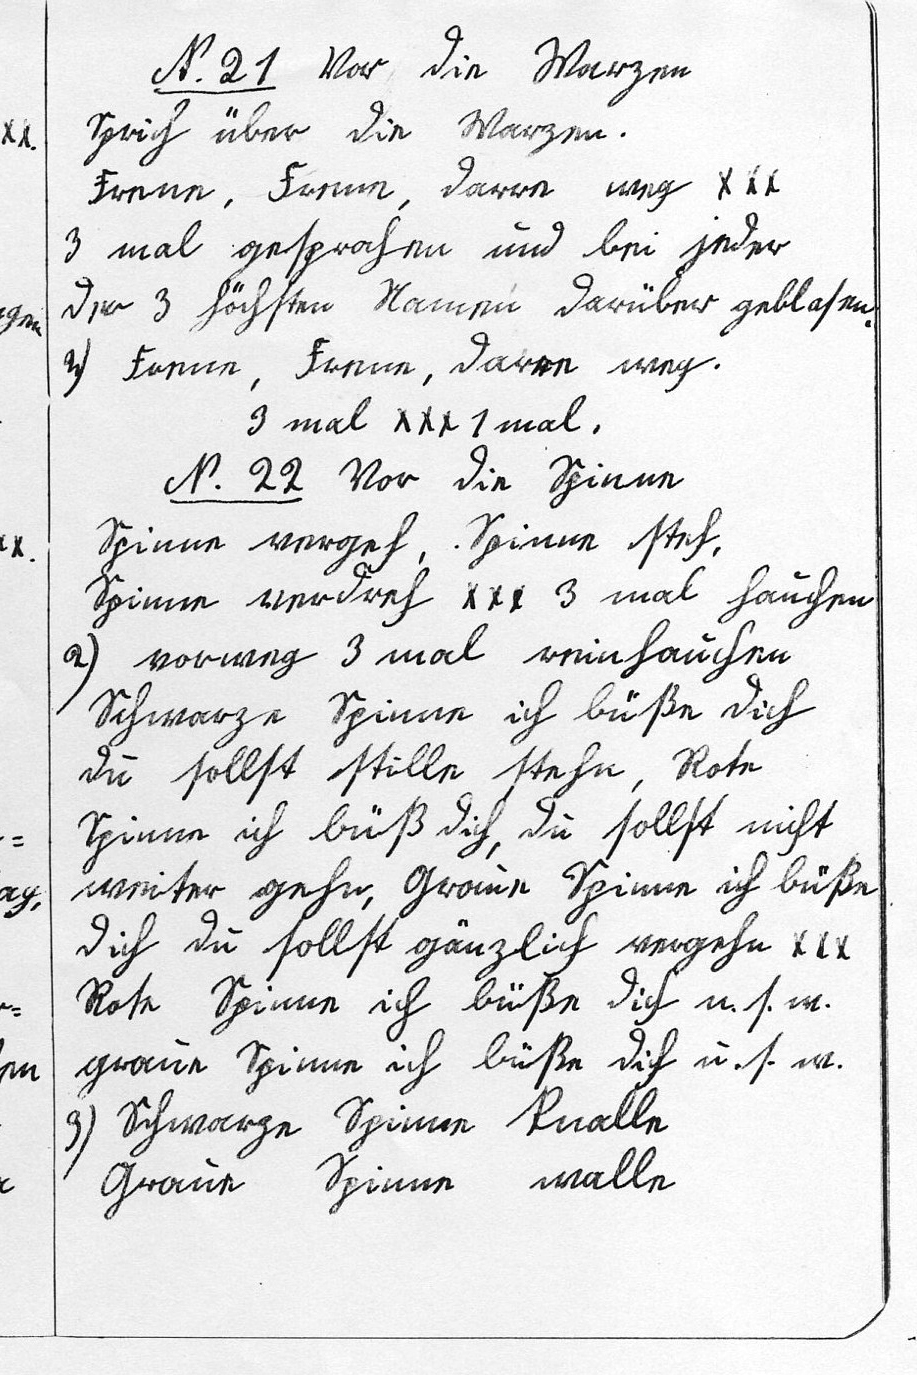 N. 21 Vor die Warzen
xx. Sprich über die Warzen.
Frene, Frene, darre weg xxx
3 mal gesprochen und bei jeder
gen der 3 höchsten Namen darüber geblasen.
2) Frene, Frene, darre weg.
3 mal xxx 1 mal.
N. 22 Vor die Spinne
xx. Spinne vergeh, Spinne steh,
Spinne verdreh xxx 3 mal hauchen
2) vorweg 3 mal reinhauchen
Schwarze Spinne ich büße dich
du sollst stille stehn, Rote
Spinne ich büß dich, du sollst nicht
weiter gehn, Graue Spinne ich büße
dich du sollst gänzlich vergehn xxx
Rote Spinne ich büße dich u. s. w.
graue Spinne ich büße dich u. s. w.
3) Schwarze Spinne knalle
Graue Spinne walle